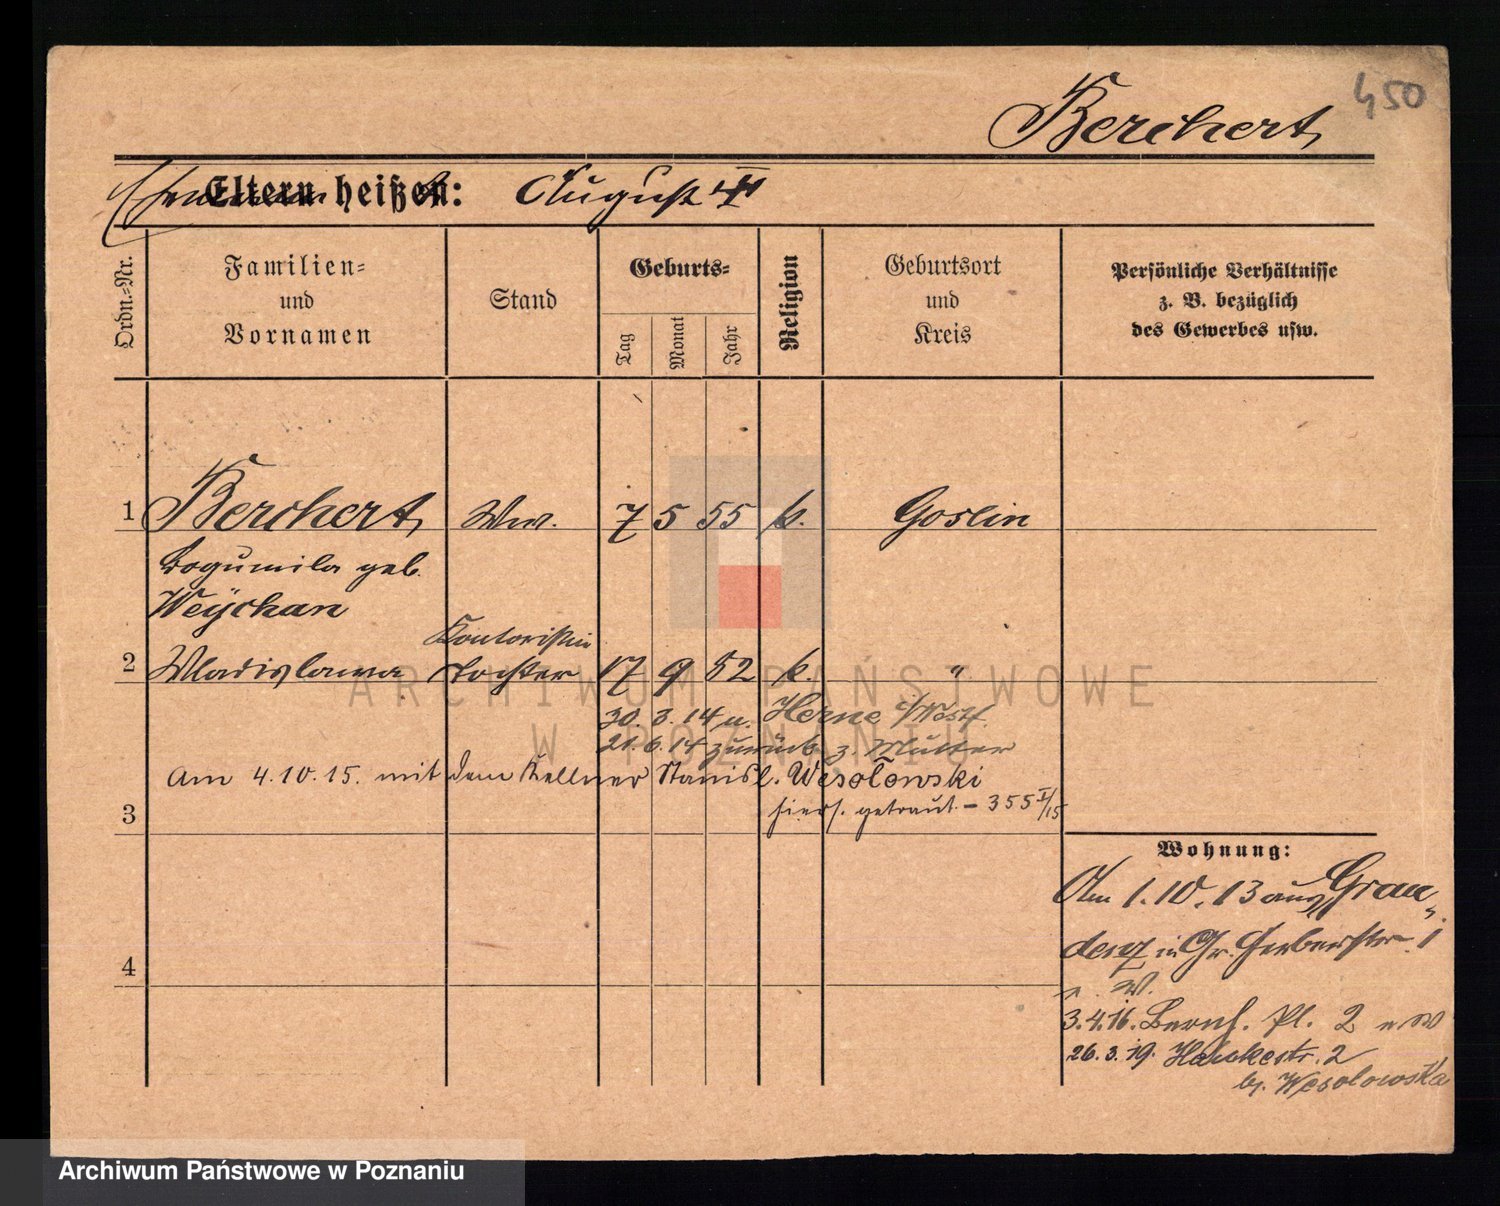 450
Berchert,
Eltern heißen: August
Ordn.-Nr.
Familien-
und
Vornamen
Stand
Geburts-
Tag
Monat
Jahr
Religion
Geburtsort
und
Kreis
Persönliche Verhältnisse
z. B. bezüglich
des Gewerbes usw.
1 Berchert, Ww. 7 5 55 k. Goslin
Bogumila geb.
Weÿchan
Kontoristin
2 Wladislawa Tochter 17 9 82 k. "
30. 3. 14 n. Herne i/Westf.
21. 6. 14 zurück z. Mutter
Am 4.10.15. mit dem Kellner Stanisl. Wesołowski
3 hiers. getraut. – 355 I/15
Wohnung:
Am 1.10.13 aus Grau-
denz in Gr. Gerberstr. 1
4
3.4.16. Bernh. Pl. 2
26.3.19. Haukestr. 2
b/. Wesolowska
ARCHIWUM PAŃSTWOWE
W POZNANIU
Archiwum Państwowe w Poznaniu